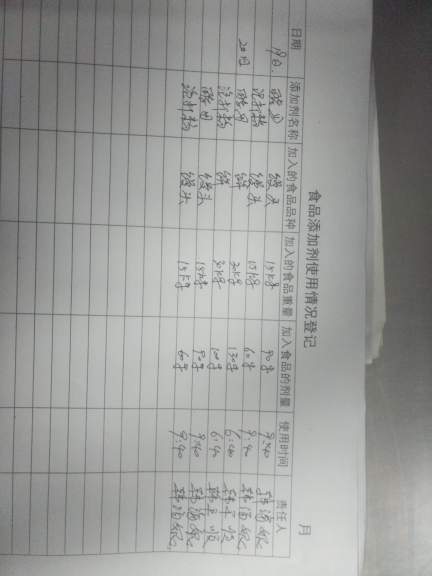 食品添加剂使用情况登记
月
日期 添加剂名称 加入的食品品种 加入的食品重量 加入食品的剂量 使用时间 责任人
19日. 酵母 馒头 15kg 90g 9:40
泡打粉 馒头 15kg 60g 9:40
20日 酵母 饼 30kg 130g 6:40
泡打粉 饼 30kg 100g 6:40
酵母 馒头 15kg 90g 9:40
泡打粉 馒头 15kg 60g 9:40